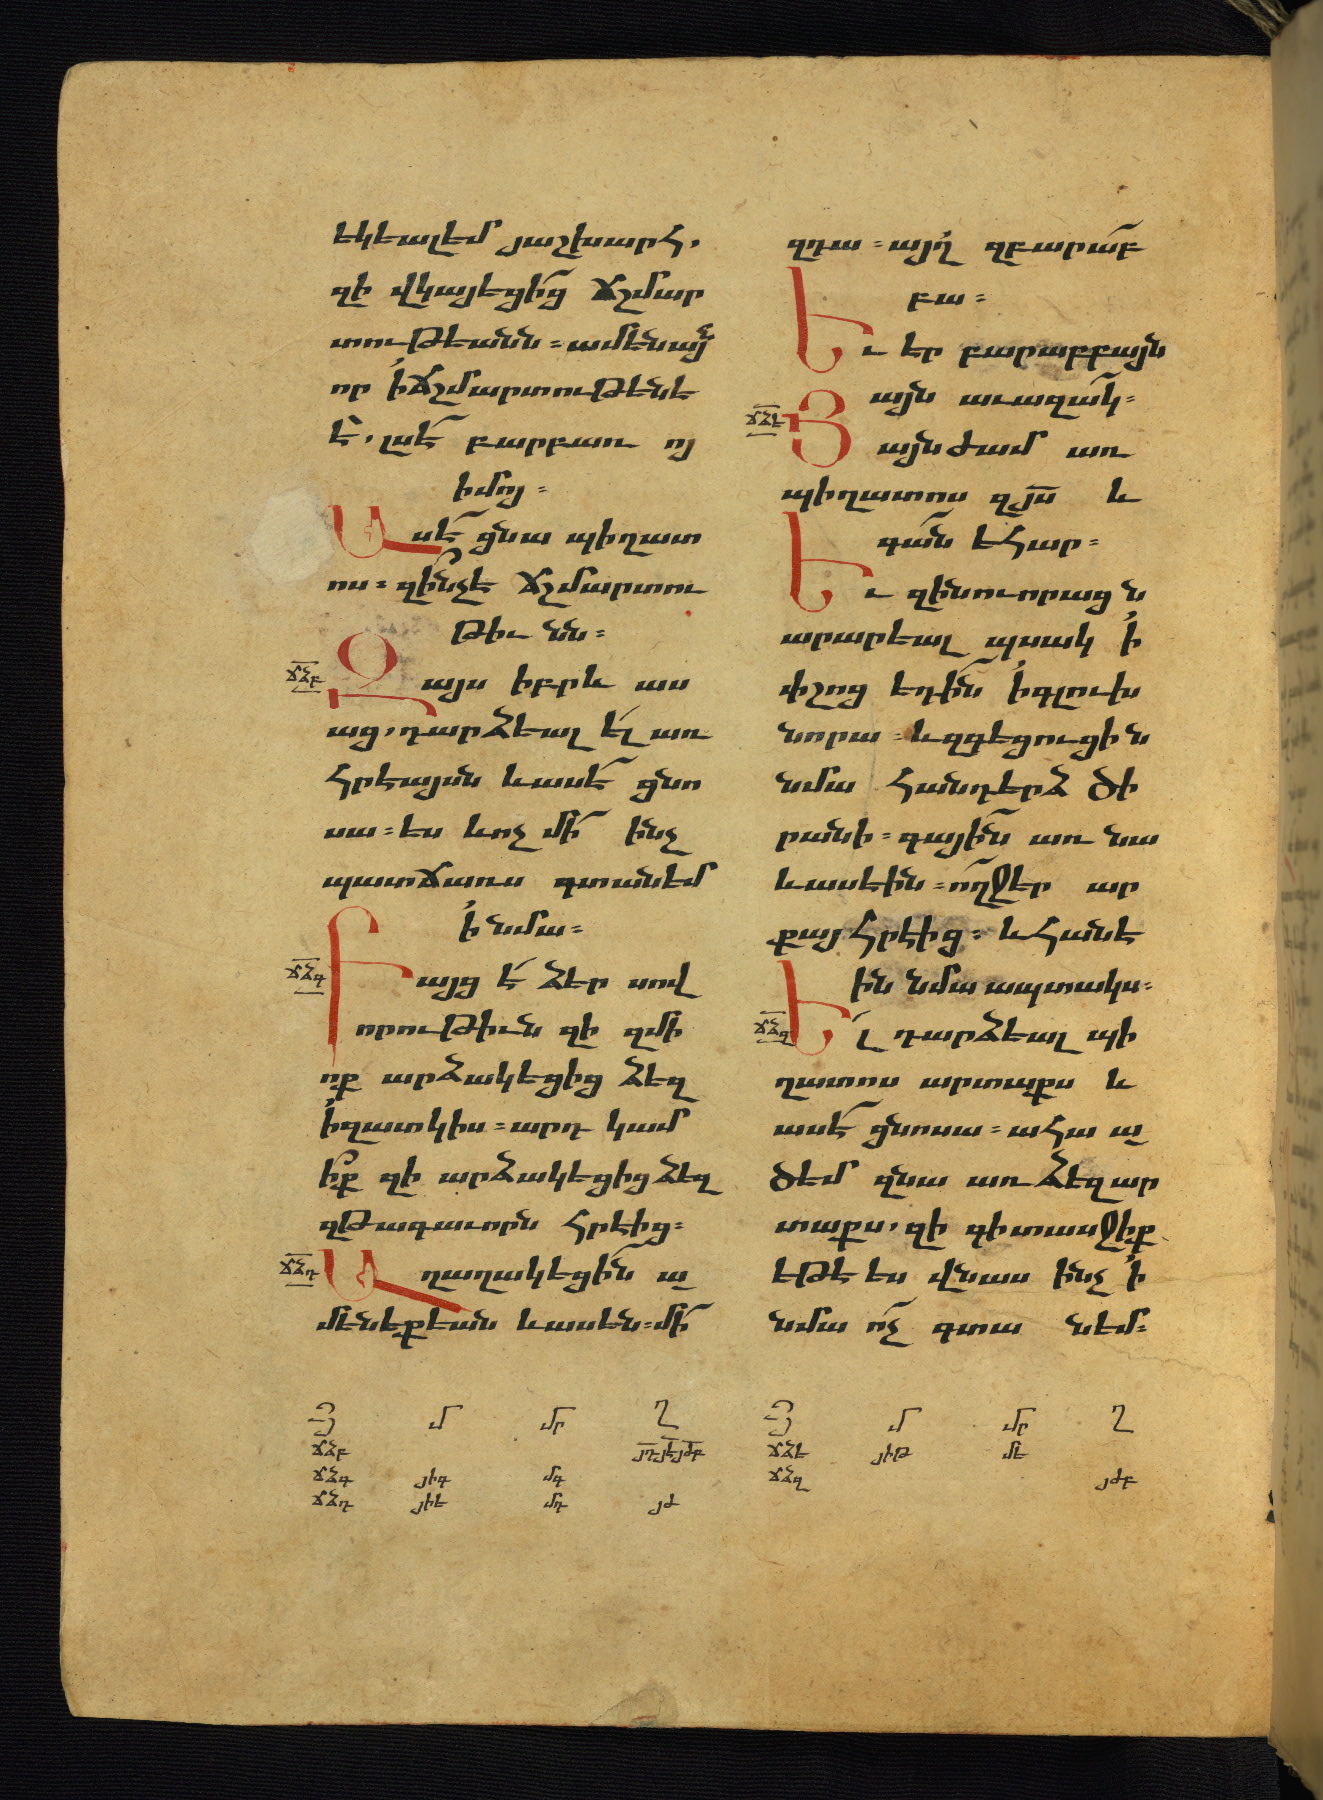 եկեալեմ յաշխարհ,
զի վկայեցից ճշմար
տութեանն։ ամենայն
որ ի ճշմարտութենէ
է, լսէ բարբառ ոյ
իմոյ։
Ասէ ցնա պիղատ
ոս։ զինչ է ճշմարտու
թիւ նն։
ճձբ Զայս իբրև աս
աց, դարձեալ ել առ
հրեայսն և ասէ ցնո
սա։ ես և ոչ մի ինչ
պատճառս գտանեմ
ի նմա։
ճձգ Բայց է ձեր սով
որութիւն զի զմի
ոք արձակեցից ձեզ
ի զատկիս։ արդ կամ
իք զի արձակեցից ձեզ
զթագաւորն հրեից։
ճձդ Աղաղակեցին ա
մենեքեան և ասեն։ մի
զդա։ այղ զբարաբ
բա։
Եւ եր բարաբբայն
այն աւազակ։
ճձե Յայնժամ առ
պիղատոս զյս և
գան եհար։
Եւ զինուորացն
արարեալ պսակ ի
փշոց եդին ի գլուխ
նորա։ և զգեցուցին
նմա հանդերձ ծի
րանի։ գային առ նա
և ասեին։ ողջ եր ար
քայ հրեից։ և հանե
ին նմա ապտակս։
ճձզ Ել դարձեալ պի
ղատոս արտաքս և
ասէ ցնոսա։ ահա ա
ծեմ զնա առ ձեզ ար
տաքս, զի գիտասջիք
եթե ես վնաս ինչ ի
նմա ոչ գտա նեմ։
Յ մ մր ղ
ճձբ յդ յէ յժբ
ճձգ յիգ մգ
ճձդ յիե մդ յժ
Յ մ մր ղ
ճձե յիթ մե
ճձզ յժբ